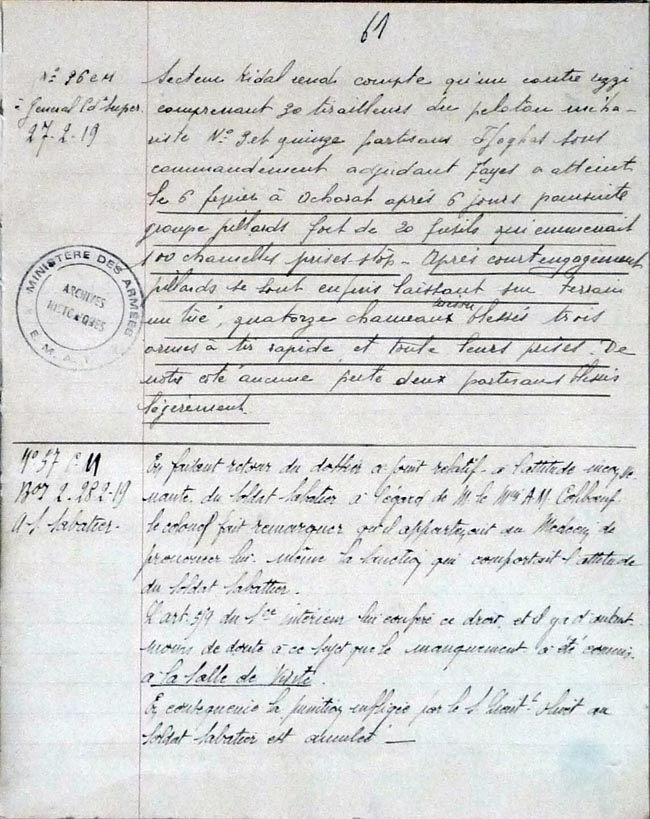 61
N° 36 CM
Général Cdt Super.
27-2-19
Secteur Kidal rend compte qu'un contre rezzi
comprenant 30 tirailleurs du peloton méha-
riste N° 3 et quinze partisans Ifoghas sous
commandement adjudant Fayes a atteint
le 6 février à Acharat après 6 jours poursuite
groupe pillards fort de 20 fusils qui emmenait
100 chamelles prises stop - Après court engagement
pillards se sont enfuis laissant sur terrain
un tué, quatorze chameaux blessés trois
armes à tir rapide et toute leurs prises. De
notre côté aucune perte deux partisans blessés
légèrement.
MINISTERE DES ARMEES
ARCHIVES
HISTORIQUES
E. M. A. T.
N° 57 C M
2-28-2-19
A-S Sabatier-
En faisant retour du dossier à joint relatif à l'attitude inconve
nante du soldat Sabatier à l'égard de M le
le colonel fait remarquer qu'il appartenait au Médecin de
prononcer lui-même la sanction qui comportait l'attitude
du soldat Sabatier.
L'art 319 du Sce intérieur lui confère ce droit, et il y a d'autant
moins de doute à ce sujet que le manquement a été commis
à la salle de visite.
En conséquence la punition infligée par le S. Lieut.t au
soldat Sabatier est annulée -